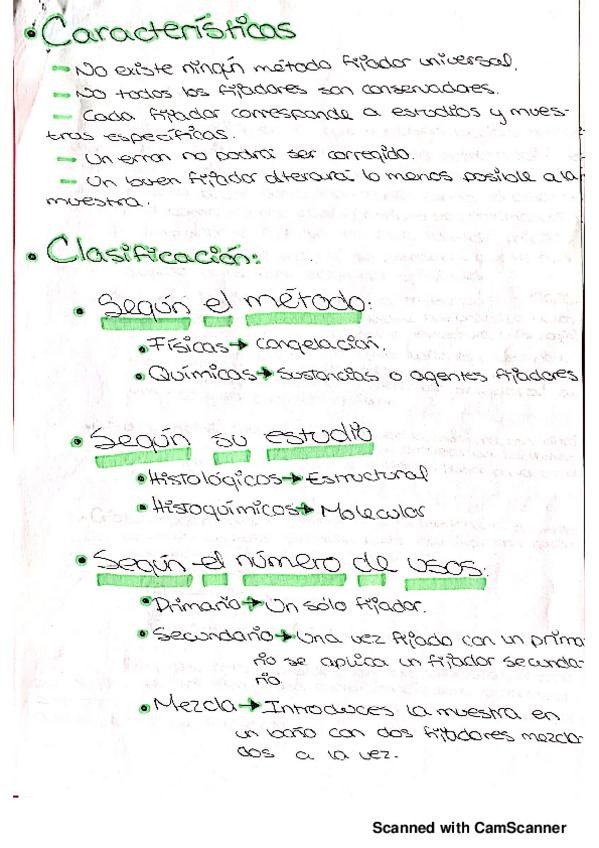 • Características
– No existe ningún método fijador universal.
– No todos los fijadores son conservadores.
– Cada fijador corresponde a estudios y mues-
tras específicas.
– Un error no podrá ser corregido.
– Un buen fijador alterará lo menos posible a la
muestra.
• Clasificación:
• Según el método:
• Físicas → Congelación.
• Químicas → Sustancias o agentes fijadores
• Según su estudio
• Histológicos → Estructural
• Histoquímicos → Molecular
• Según el número de usos:
• Primario → Un sólo fijador.
• Secundario → Una vez fijado con un prima-
rio se aplica un fijador secunda-
rio.
• Mezcla → Introduces la muestra en
un baño con dos fijadores mezcla-
dos a la vez.
Scanned with CamScanner